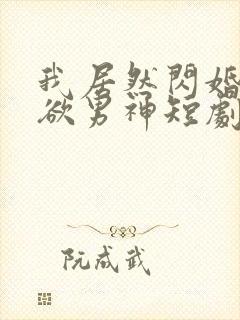 我居然閃婚
欲男神短劇
阮成武